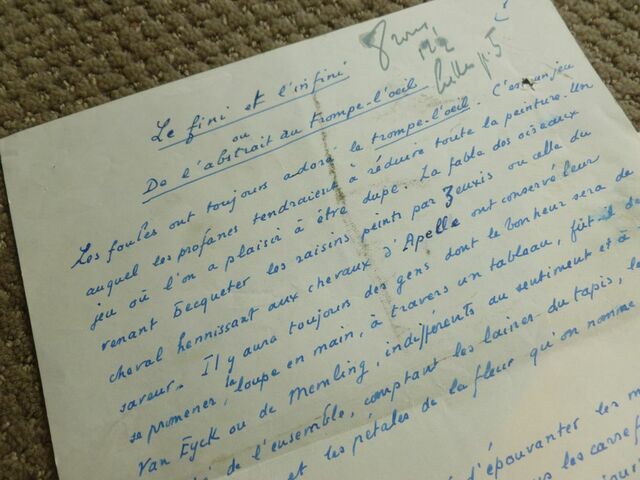 Le fini et l'infini
ou
De l'abstrait au trompe-l'oeil
Les foules ont toujours adoré le trompe-l'oeil. C'est un jeu
auquel les profanes tendraient à réduire toute la peinture. Un
jeu où l'on a plaisir à être dupe. La fable des oiseaux
venant becqueter les raisins peints par Zeuxis ou celle du
cheval hennissant aux chevaux d'Apelle ont conservé leur
saveur. Il y aura toujours des gens dont le bonheur sera de
se promener, la loupe en main, à travers un tableau, fût-il de
Van Eyck ou de Memling, indifférents au sentiment et à
de l'ensemble, comptant les laines du tapis, le
et les pétales de la fleur qu'on nomme
d'épouvanter les m
les carref